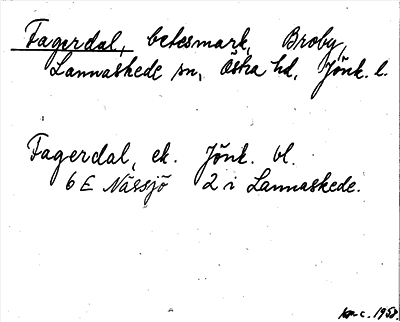 Fagerdal, betesmark, Broby,
Lannaskede sn, Östra hd, Jönk. l.
Fagerdal, ek. Jönk. bl.
6 E Nässjö 2 i Lannaskede.
1958.